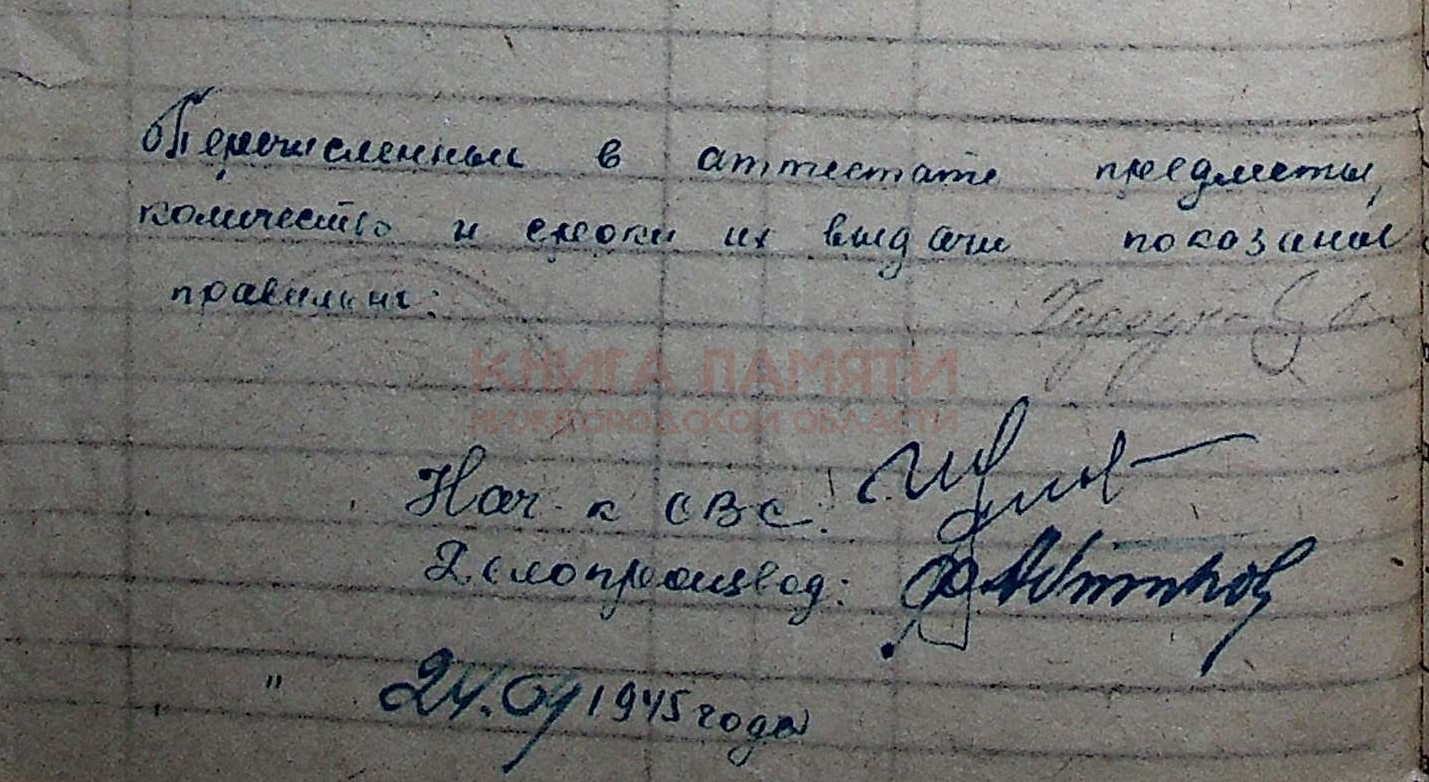 Перечисленные в аттестате предметы,
количество и сроки их выдачи показаны
правильно:
КНИГА ПАМЯТИ
НИЖЕГОРОДСКОЙ ОБЛАСТИ
Нач-к ОВС:
Делопроизвод:
" 24.04 1945 года